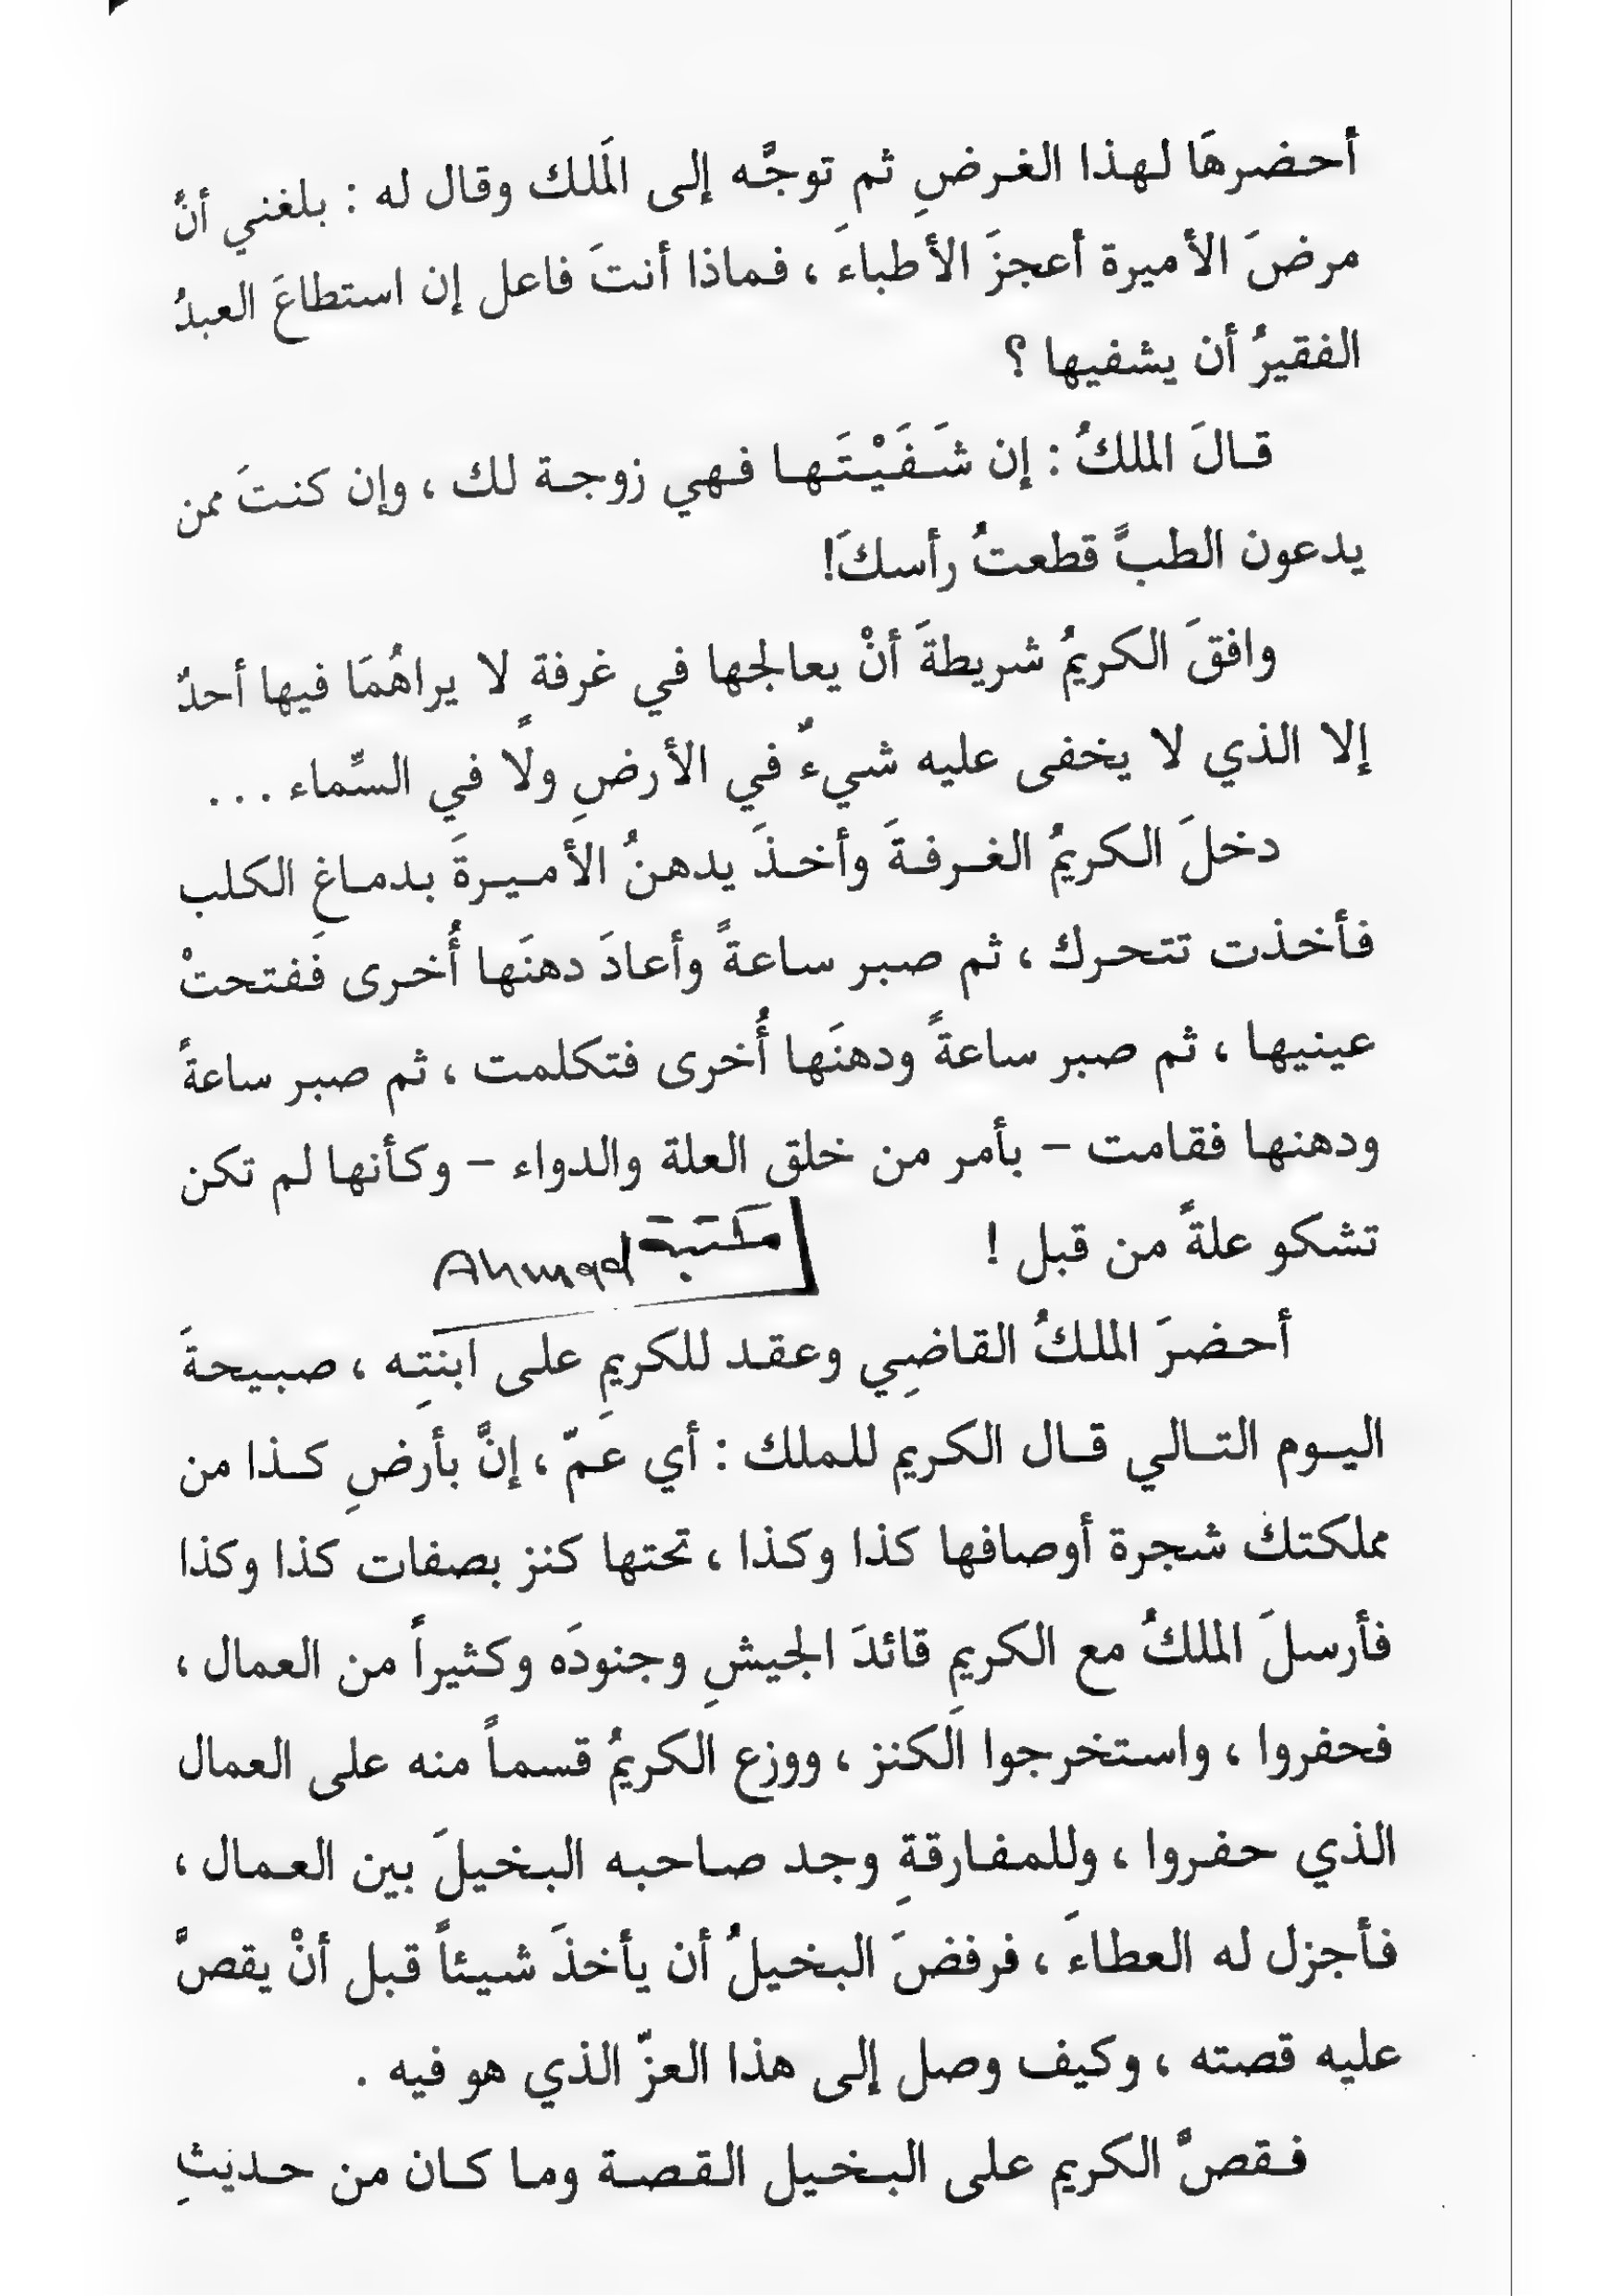 أحضرهَا لهذا الغرضِ ثم توجَّه إلى المَلك وقال له : بلغني أنَّ
مرضَ الأميرة أعجزَ الأطباءَ ، فماذا أنتَ فاعل إن استطاعَ العبدُ
الفقيرُ أن يشفيها ؟
قالَ الملكُ : إن شَفَيْتَها فهي زوجة لك ، وإن كنتَ ممن
يدعون الطبَّ قطعتُ رأسكَ!
وافقَ الكريمُ شريطةَ أنْ يعالجها في غرفةٍ لا يراهُمَا فيها أحدٌ
إلا الذي لا يخفى عليه شيءٌ في الأرضِ ولا في السَّماء . . .
دخلَ الكريمُ الغرفةَ وأخذَ يدهنُ الأميرةَ بدماغِ الكلب
فأخذت تتحرك ، ثم صبر ساعةً وأعادَ دهنَها أُخرى فَفتحتْ
عينيها ، ثم صبر ساعةً ودهنَها أُخرى فتكلمت ، ثم صبر ساعةً
ودهنها فقامت – بأمر من خلق العلة والدواء – وكأنها لم تكن
تشكو علةً من قبل !
مكتبة Ahmad
أحضرَ الملكُ القاضِي وعقد للكريمِ على ابنتِه ، صبيحةَ
اليوم التالي قال الكريم للملك : أي عمّ ، إنَّ بأرضِ كذا من
مملكتك شجرة أوصافها كذا وكذا ، تحتها كنز بصفات كذا وكذا
فأرسلَ الملكُ مع الكريمِ قائدَ الجيشِ وجنودَه وكثيراً من العمال ،
فحفروا ، واستخرجوا الكنز ، ووزع الكريمُ قسماً منه على العمال
الذي حفروا ، وللمفارقةِ وجد صاحبه البخيلَ بين العمال ،
فأجزل له العطاءَ ، فرفضَ البخيلُ أن يأخذَ شيئاً قبل أنْ يقصَّ
عليه قصته ، وكيف وصل إلى هذا العزّ الذي هو فيه .
فقصَّ الكريم على البخيل القصة وما كان من حديثِ